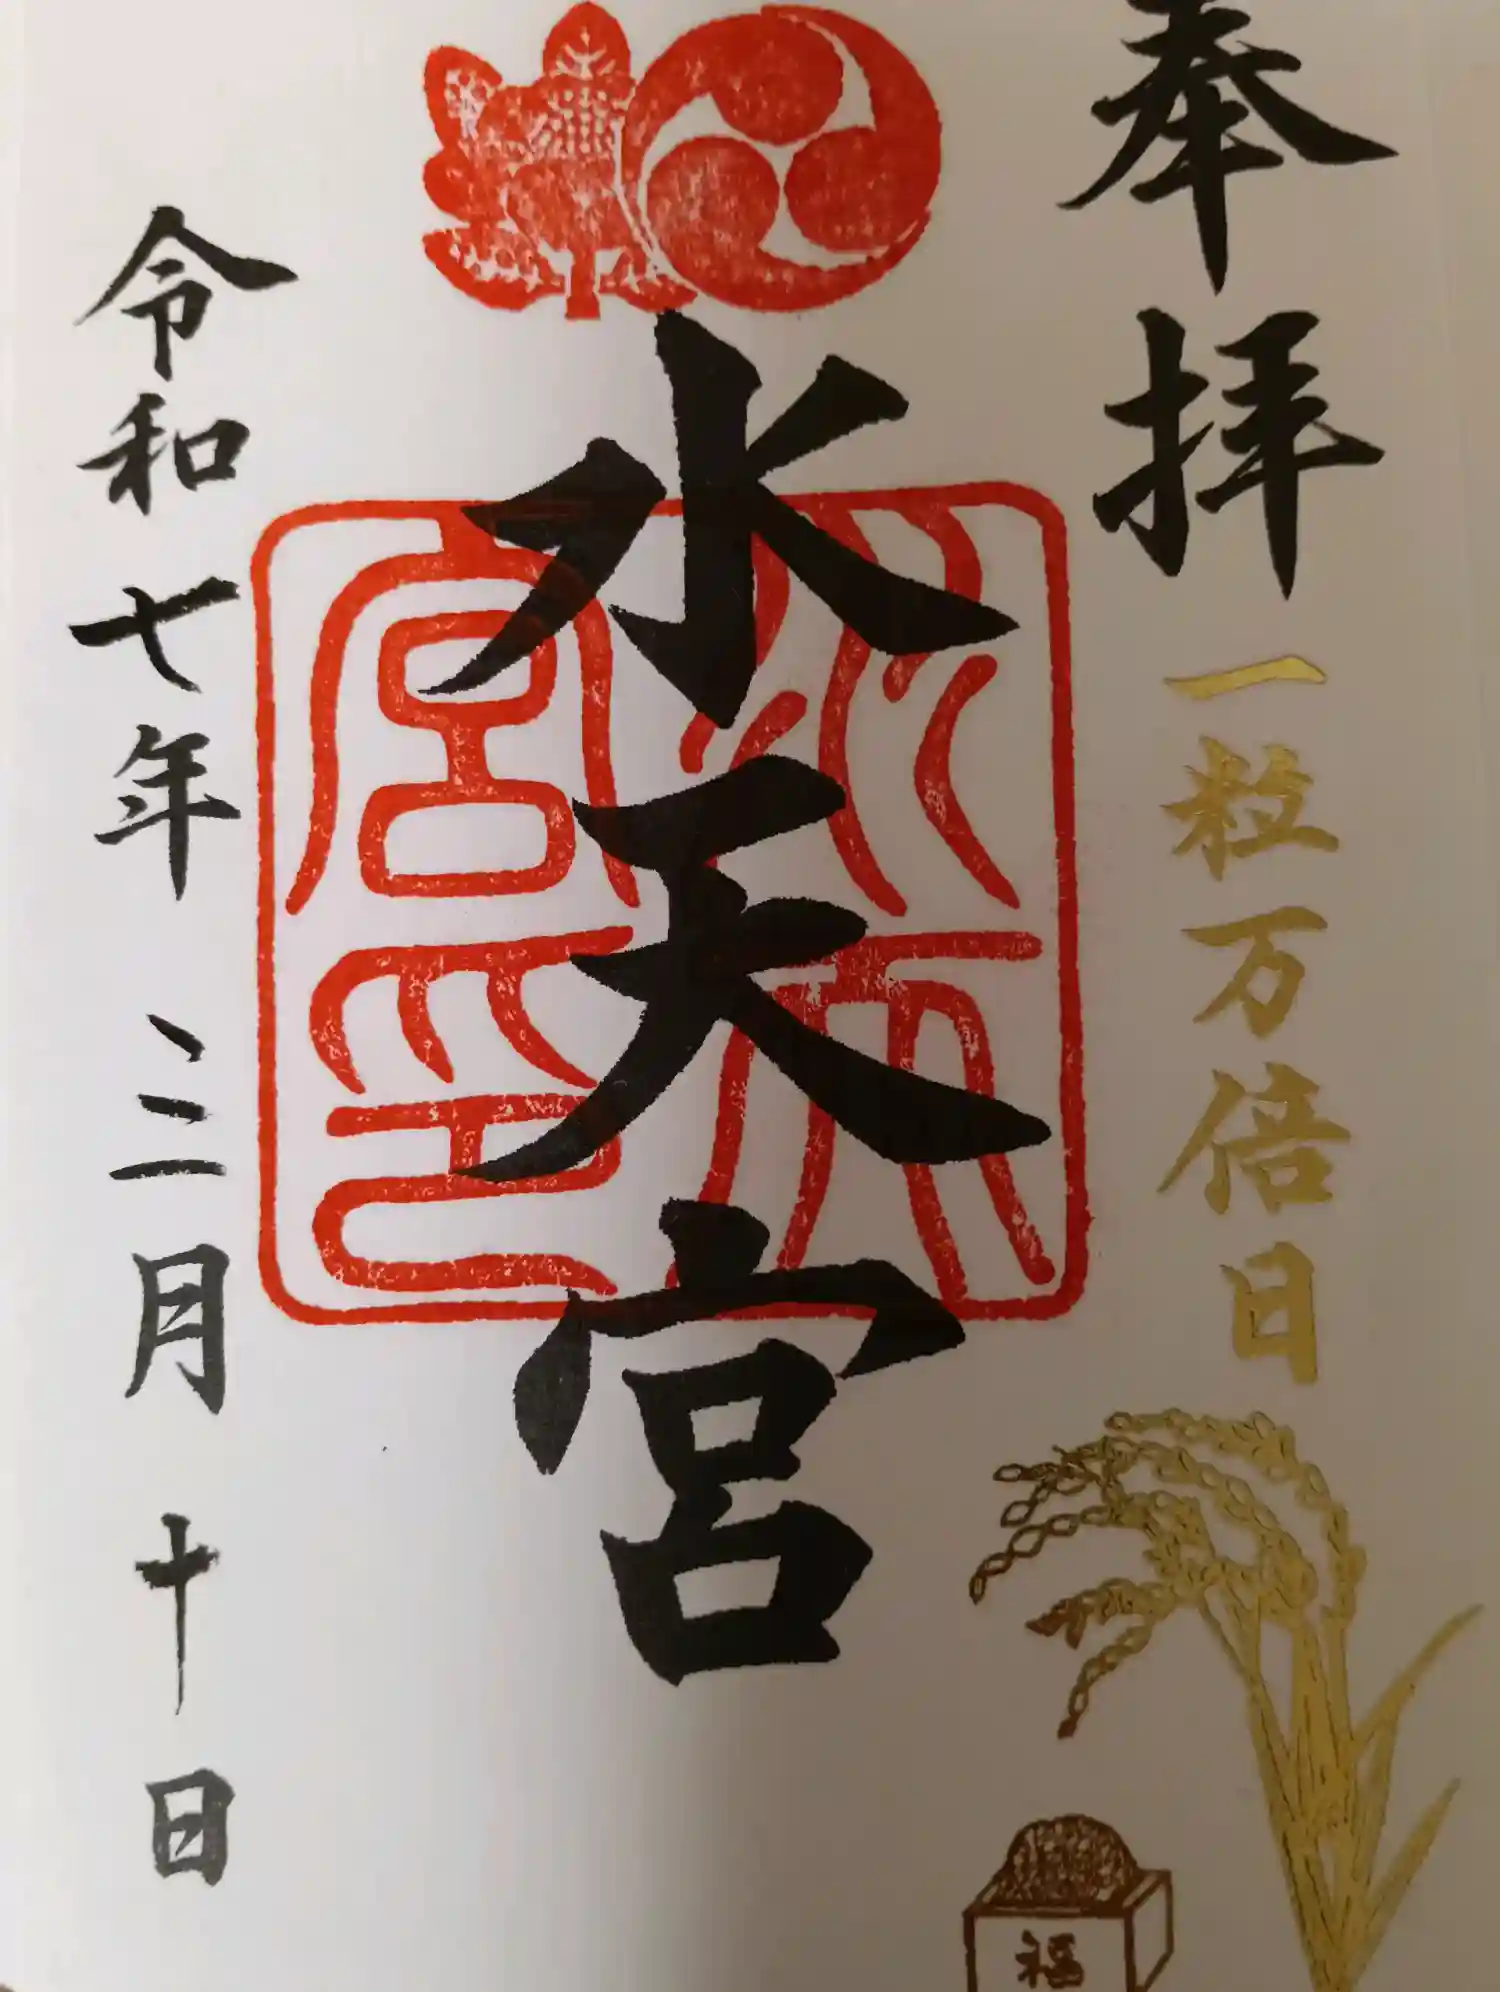 奉拝
一粒万倍日
福
水天宮
水天宮印
令和七年三月十日